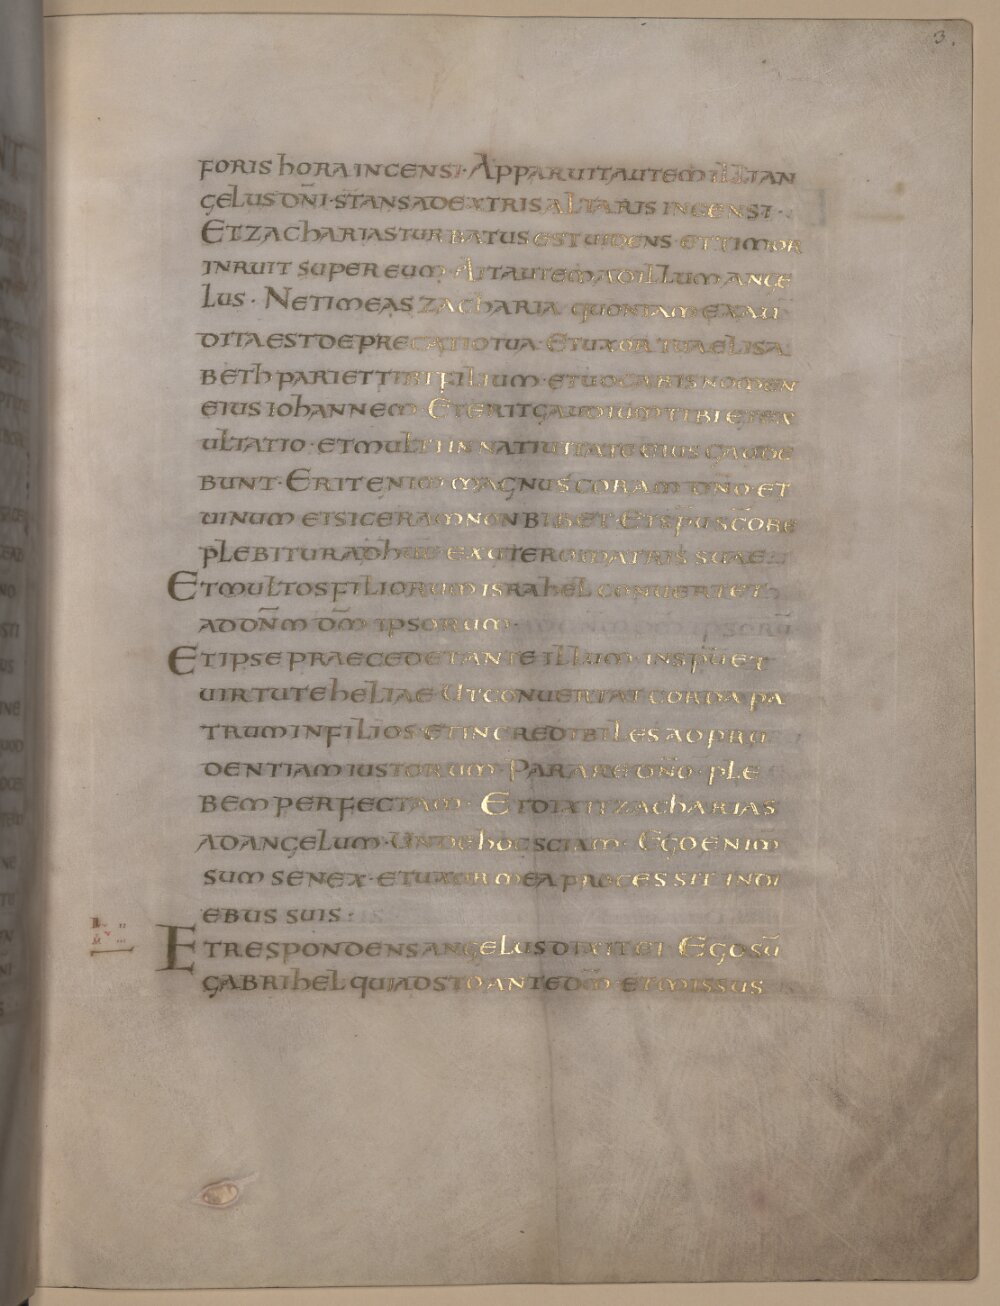 3.
foris hora incensi · Apparuit autem illi an
gelus dn̄i · stans a dextris altaris incensi ·
Et zacharias turbatus est uidens · et timor
inruit super eum · Ait autem ad illum ange
lus · Ne timeas zacharia quoniam exau
dita est deprecatio tua · Et uxor tua elisa
beth pariet tibi filium · et uocabis nomen
eius iohannem · Et erit gaudium tibi et ex
ultatio · et multi in natiuitate eius gaude
bunt · Erit enim magnus coram dn̄o · et
uinum et sicera non bibet · Et sp̄u sc̄o re
plebitur adhuc ex utero matris suae
Et multos filiorum israhel conuertet
ad dn̄m dm̄ ipsorum ·
Et ipse praecedet ante illum · in sp̄u et
uirtute heliae Ut conuertat corda pa
trum in filios · et incredibiles ad pru
dentiam iustorum · Parare dn̄o · ple
bem perfectam · Et dixit zacharias
ad angelum · Unde hoc sciam · Ego enim
sum senex · et uxor mea processit in di
ebus suis ·
Et respondens angelus dixit ei · Ego sū
gabrihel qui adsto ante dm̄ · et missus